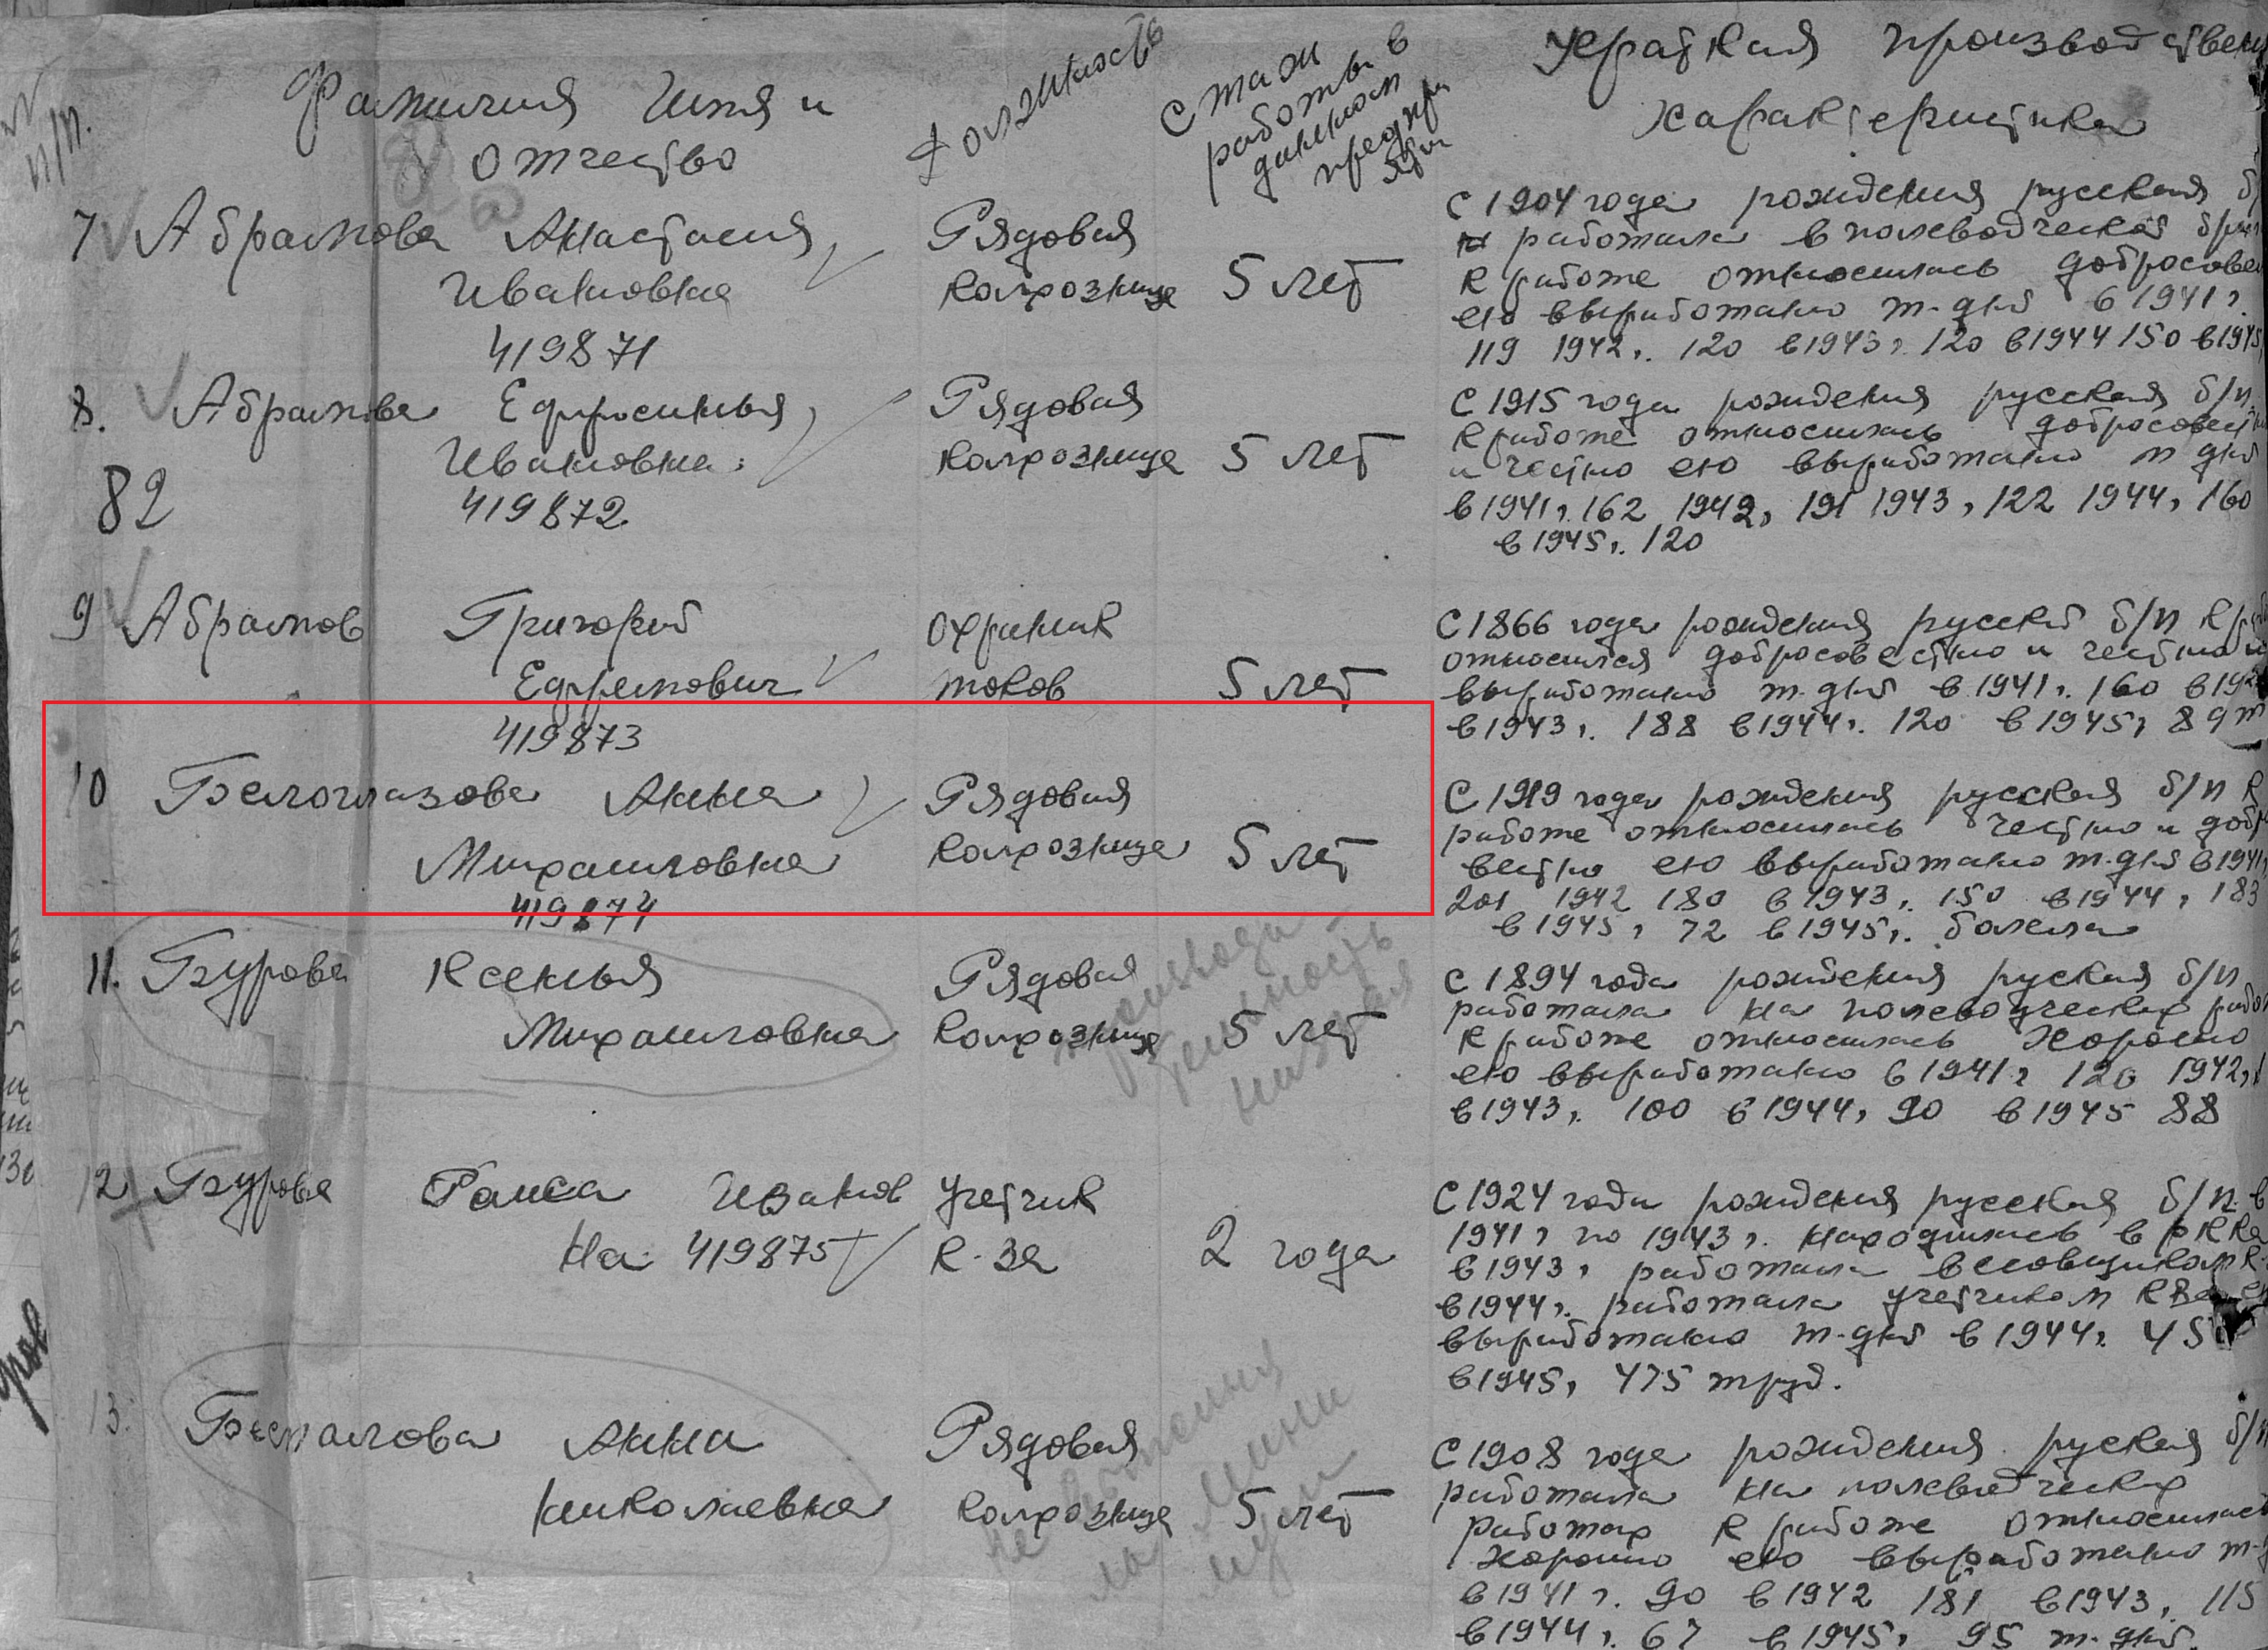 № п/п.
Фамилия Имя и отчество
Должность
Стаж работы в данном предприятии
Краткая производствен
характеристика
7 Абрамова Анастасия
Ивановна
419871
Рядовая
колхозница
5 лет
С 1904 года рождения русская
работала в полеводческой
к работе относилась добросове
ею выработано т-дней в 1941г.
119 1942г. 120 в 1943г. 120 в 1944 150 в 1945
8. Абрамова Ефросинья
Ивановна
419872
82
Рядовая
колхозница
5 лет
С 1915 года рождения русская б/п.
к работе относилась добросовест
и честно ею выработано т дней
в 1941г. 162 1942г 191 1943г 122 1944г 160
в 1945г. 120
9 Абрамов Григорий
Ефремович
419873
охраник
токов
5 лет
С 1866 года рождения русский б/п к
относился добросовестно и честно
выработано т-дней в 1941г. 160 в 19
в 1943г. 188 в 1944г. 120 в 1945г 89 т
10 Белоглазова Анна
Михаиловна
419874
Рядовая
колхозница
5 лет
С 1919 года рождения русская б/п к
работе относилась честно и добр
вестно ею выработано т-дней в 1941г
201 1942 180 в 1943г. 150 в 1944г 183
в 1945г 72 в 1945г. болела
11. Бурова Ксенья
Михаиловна
Рядовая
колхозница
5 лет
низкая
С 1894 года рождения руская б/п
работала на полеводческих рабо
к работе относилась хорошо
ею выработано в 1941г 120 1942г
в 1943г. 100 в 1944г 90 в 1945 88
12 Бурова Раиса Иванов
на 419875
учетчик
к-за
2 года
С 1924 года рождения русская б/п. в
1941г по 1943г. находилась в РККА
в 1943г работала весовщиком к-
в 1944г. работала учетчиком
выработано т-дней в 1944г. 45
в 1945г 475 труд.
13. Беспалова Анна
Николаевна
Рядовая
колхозница
5 лет
С 1908 года рождения руская б/п
работала на полеводческих
работах к работе относилась
хорошо ею выработано т-
в 1941г. 90 в 1942 181 в 1943г. 115
в 1944г. 67 в 1945г 95 т-дней